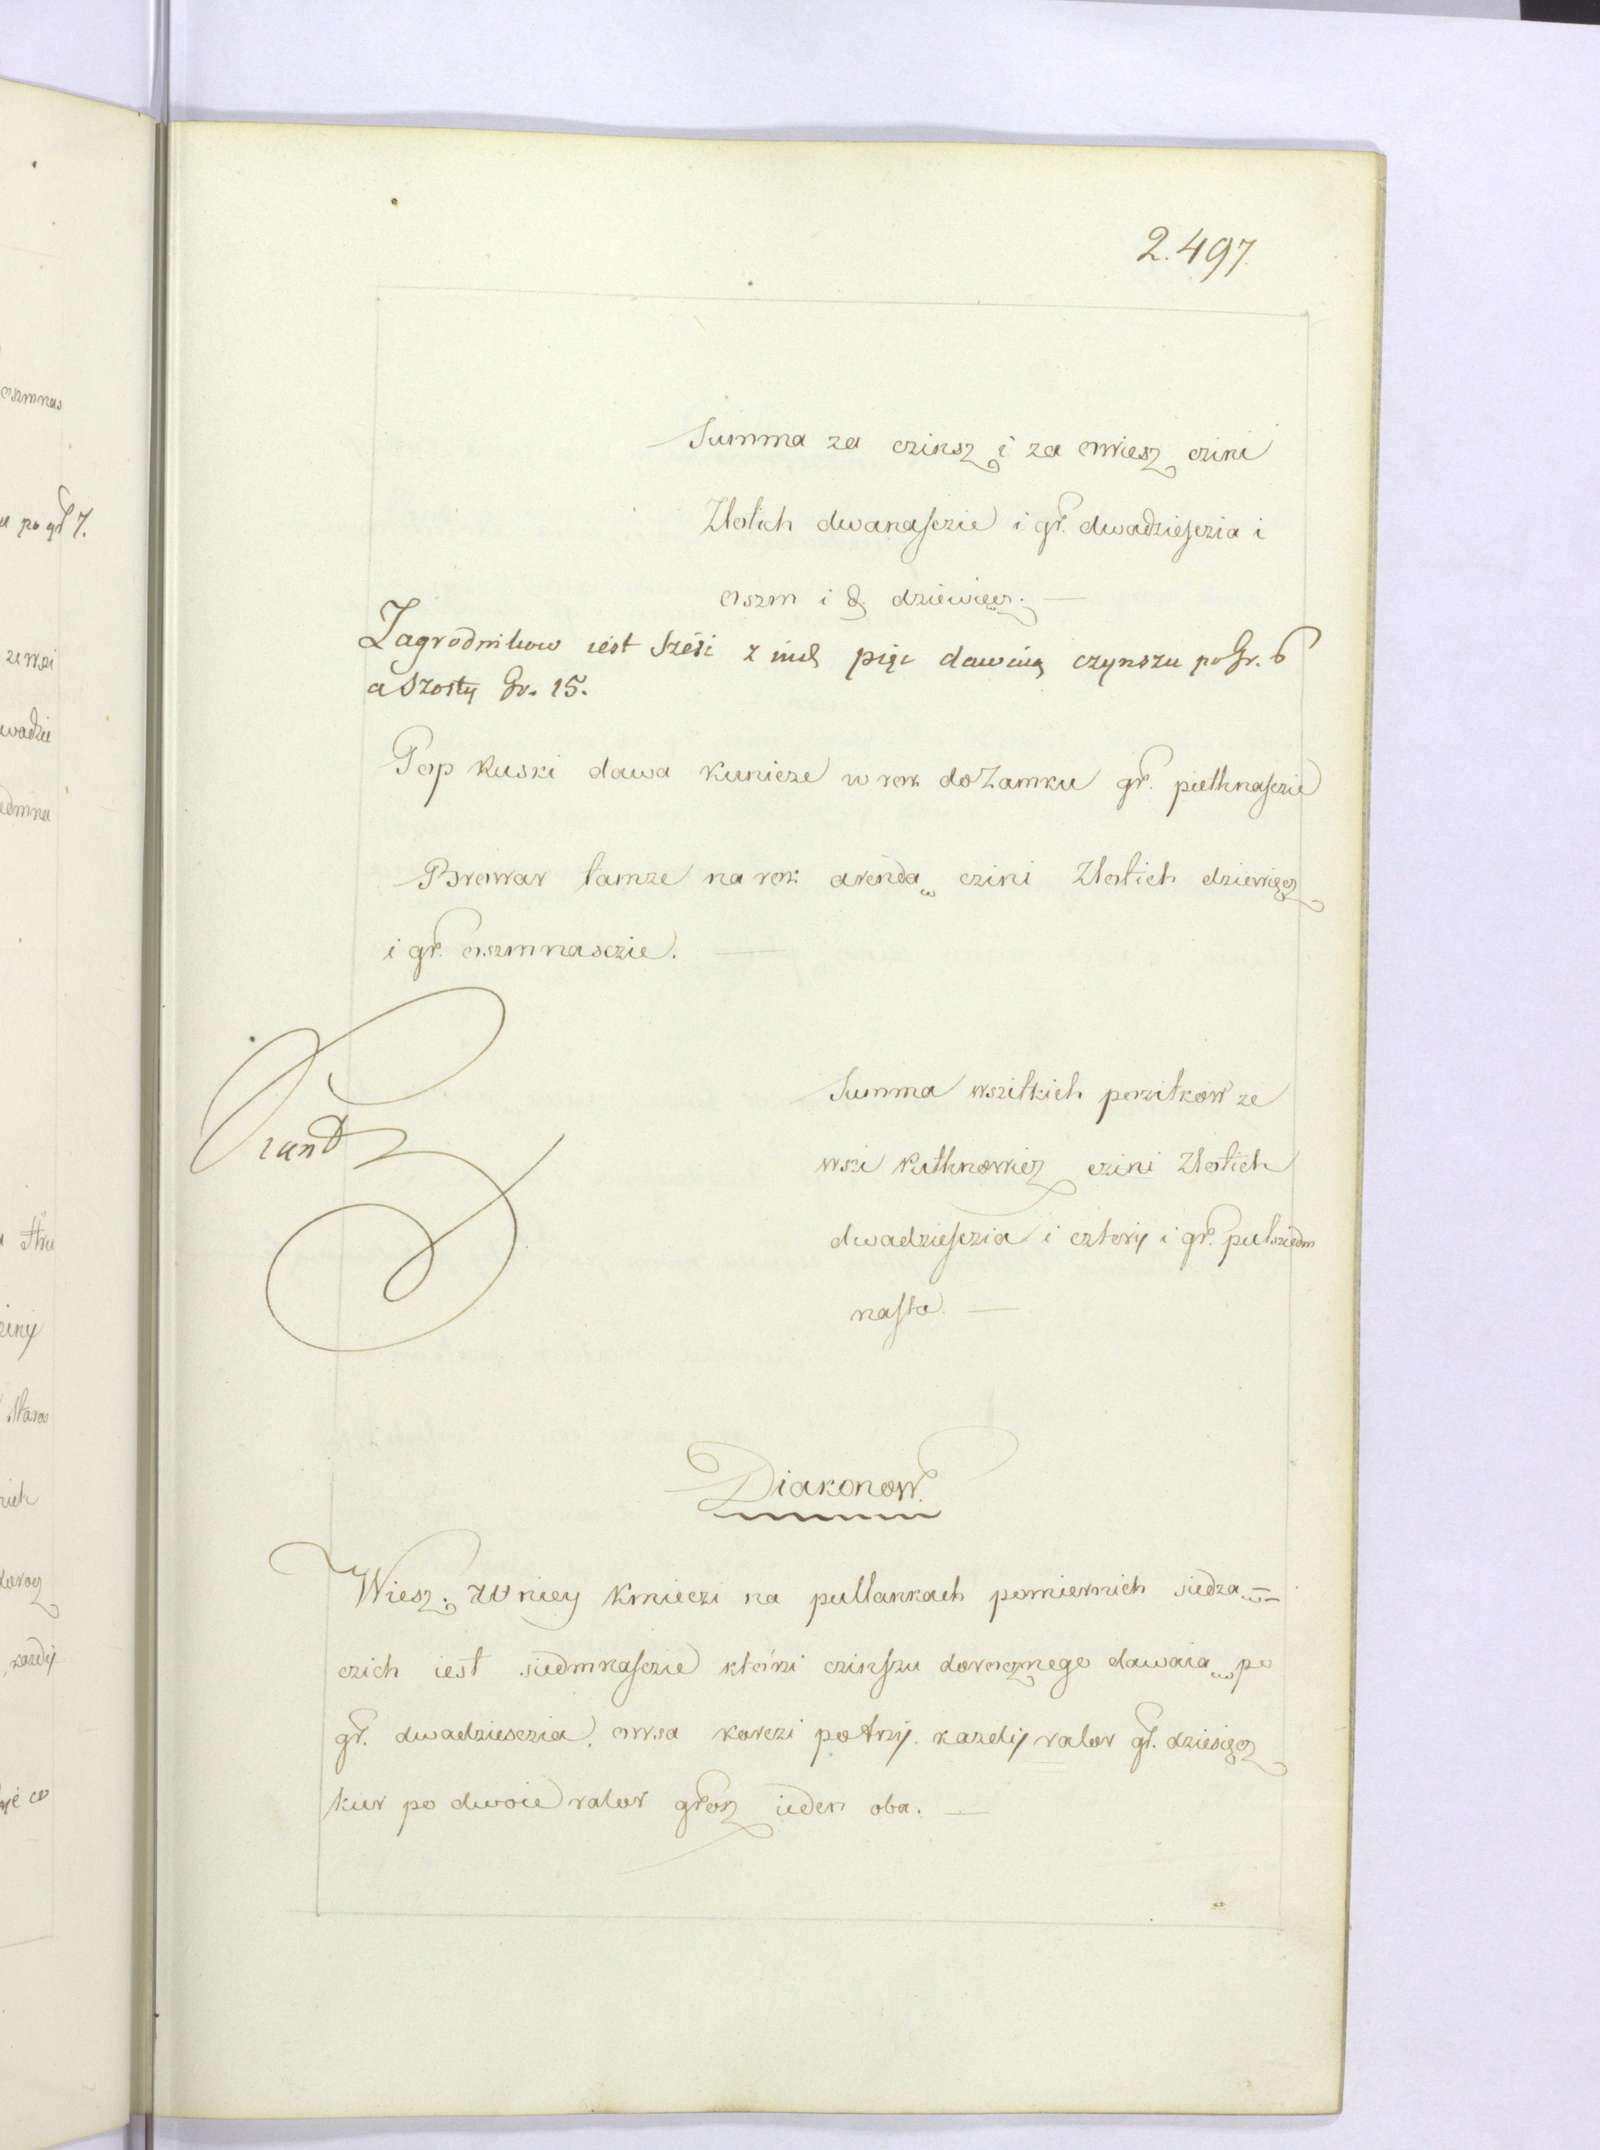 2.497
Summa za czinsz i za owiesz czini
Zlotich dwanasczie i gr. dwadziesczia i
oszm i d. dziewięcz. —
Zagrodnikow iest sześć z nich pięć dawaią czynszu po Gr. 6
a szosty Gr. 15.
Pop Ruski dawa kunicze w rok do Zamku gr. piethnasczie
Browar tamze na rok arendą czini Zlotich dziewięcz
i gr. oszmnasczie. —
Summa wszitkich pozitkow ze
wszi Kuthnowicz czini Zlotich
dwadziesczia i cztery i gr. pulsiedm
nasta. —
Diakonow.
Wiesz. W niey Kmieczi na pullankach pomiernich siedzą=
czich iest siedmnasczie którzi czinszu dorocznego dawaią po
gr. dwadziesczia. owsa korczi po trzy. kazdy valor gr. dziesięcz
kur po dwoie valor grosz ieden oba. —
oszmnas
u po gr 7.
ze wsi
wadzie
iedmna
ziny
Staros
nich
kazdy